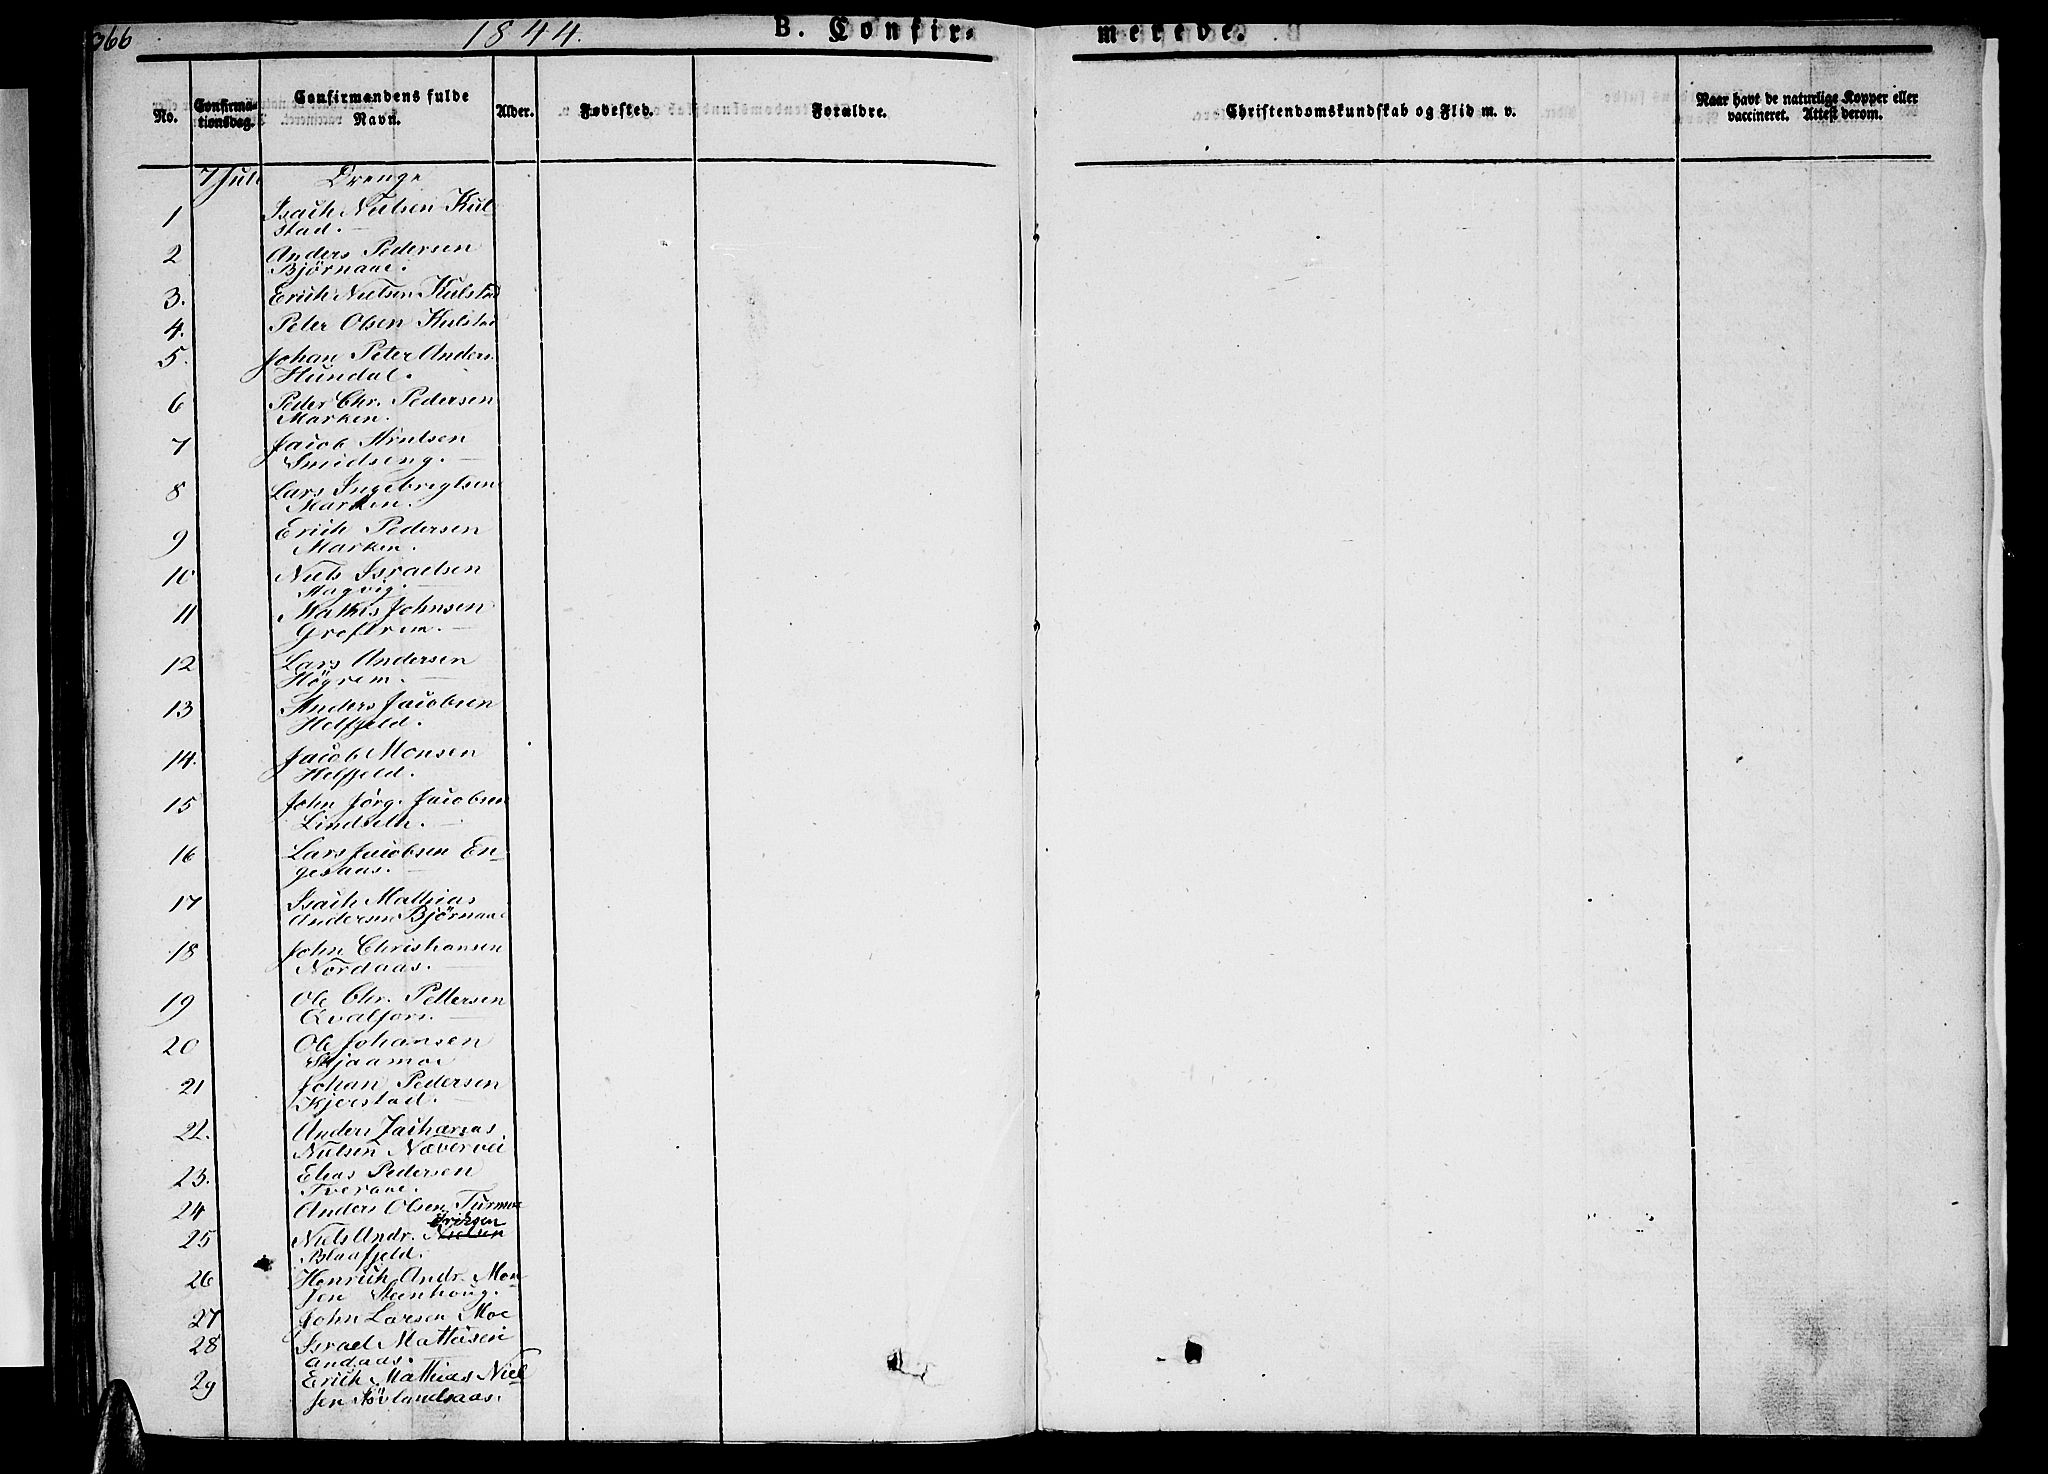 366
1844. B. Confir- merede.
No. Confirma-tionsdag. Confirmandens fulde Navn. Alder. Fødested. Forældre. Christendomskundskab og Flid m. v. Naar havt de naturlige Kopper eller vaccineret. Attest derom.
7 Juli Drenge
1 Isach Nielsen Kul-
stad.
2 Anders Pedersen
Bjørnaae.
3. Erich Nielsen Kulstad
4. Peter Olsen Kulstad
5. Johan Peter Anders.
Hundal.
6 Peder Chr. Pedersen
Marken.
7 Jacob
Smedseng.
8 Lars Ingebrigtsen
Marken.
9 Erich Pedersen
Marken.
10 Niels Israelsen
11 Mathis Johnsen
Groftrem.
12 Lars Andersen
Högrem.
13 Anders Jacobsen
Helfjeld.
14. Jacob Monsen
Helfjeld.
15 John Jörg. Jacobsen
Lindseth.
16 Lars Jacobsen En-
gesaas.
17 Isach Mathias
Andersen Björnaae
18 John Christiansen
Nordaas.
19 Ole Chr. Pettersen
Qvalfors.
20 Ole Johansen
Skjaamoe
21 Johan Pedersen
Kjerstad.
22. Anders Zacharias
Nielsen Nævervei
23. Elias Pedersen
Tveraae.
24 Anders Olsen Turmoe
Eriksen
25 Niels Andr. Nielsen
Blaafjeld.
26 Henrich Andr. Mon-
sen Steenhoug.
27 John Larsen Moe
28 Israel Mathisen
andaas.
29 Erich Mathias Niel-
sen Sövlandsaas.